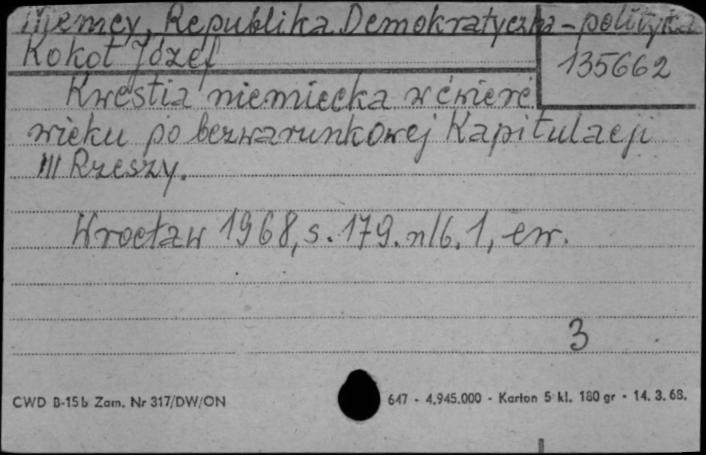 Niemcy, Republika Demokratyczna - polityka
Kokot Józef
135662
Kwestia niemiecka w ćwierć
wieku po bezwarunkowej Kapitulacji
III Rzeszy.
Wrocław 1968, s. 179. nlb. 1, err.
3
CWD B-15b Zam. Nr 317/DW/ON
647 - 4.945.000 - Karton 5 kl. 180 gr - 14. 3. 68.